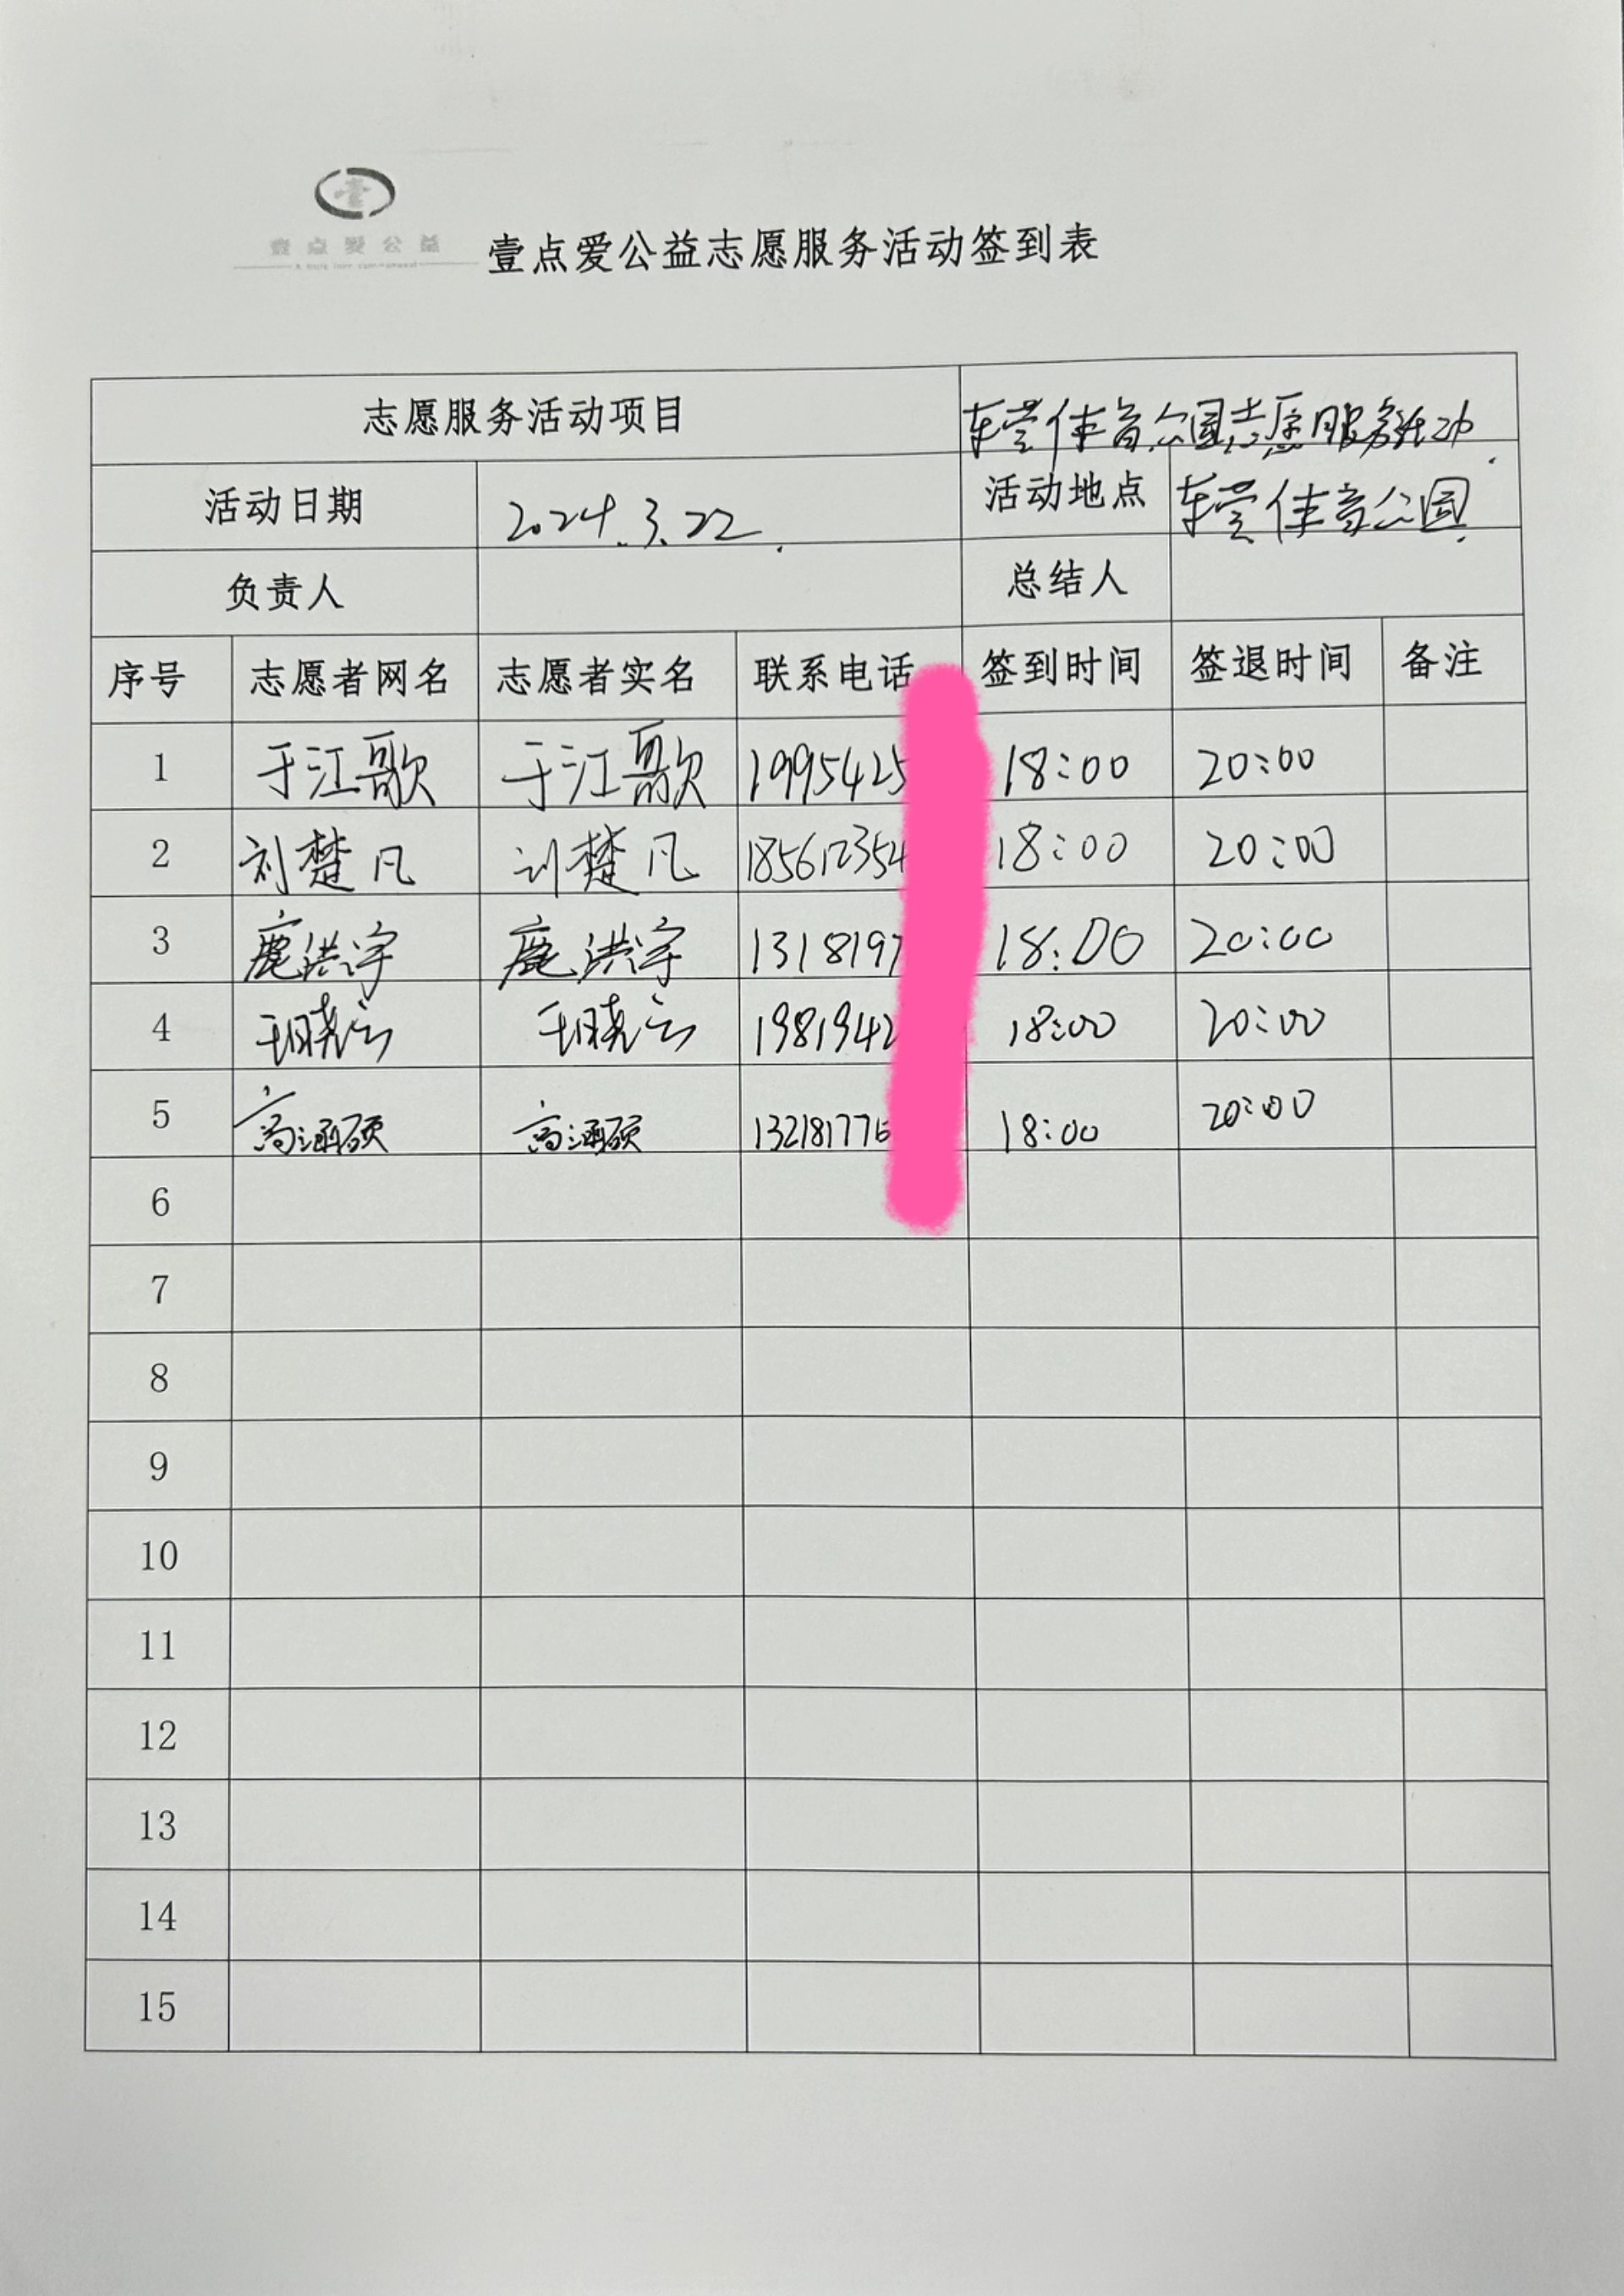 壹点爱公益
壹点爱公益志愿服务活动签到表
志愿服务活动项目 车营体育公园志愿服务活动.
活动日期 2024.3.22. 活动地点 车营体育公园.
负责人 总结人
序号 志愿者网名 志愿者实名 联系电话 签到时间 签退时间 备注
1 于江歌 于江歌 1995425 18:00 20:00
2 刘楚凡 刘楚凡 185612354 18:00 20:00
3 鹿洪宇 鹿洪宇 1318197 18:00 20:00
4 1981942 18:00 20:00
5 高涵硕 高涵硕 132181776 18:00 20:00
6
7
8
9
10
11
12
13
14
15